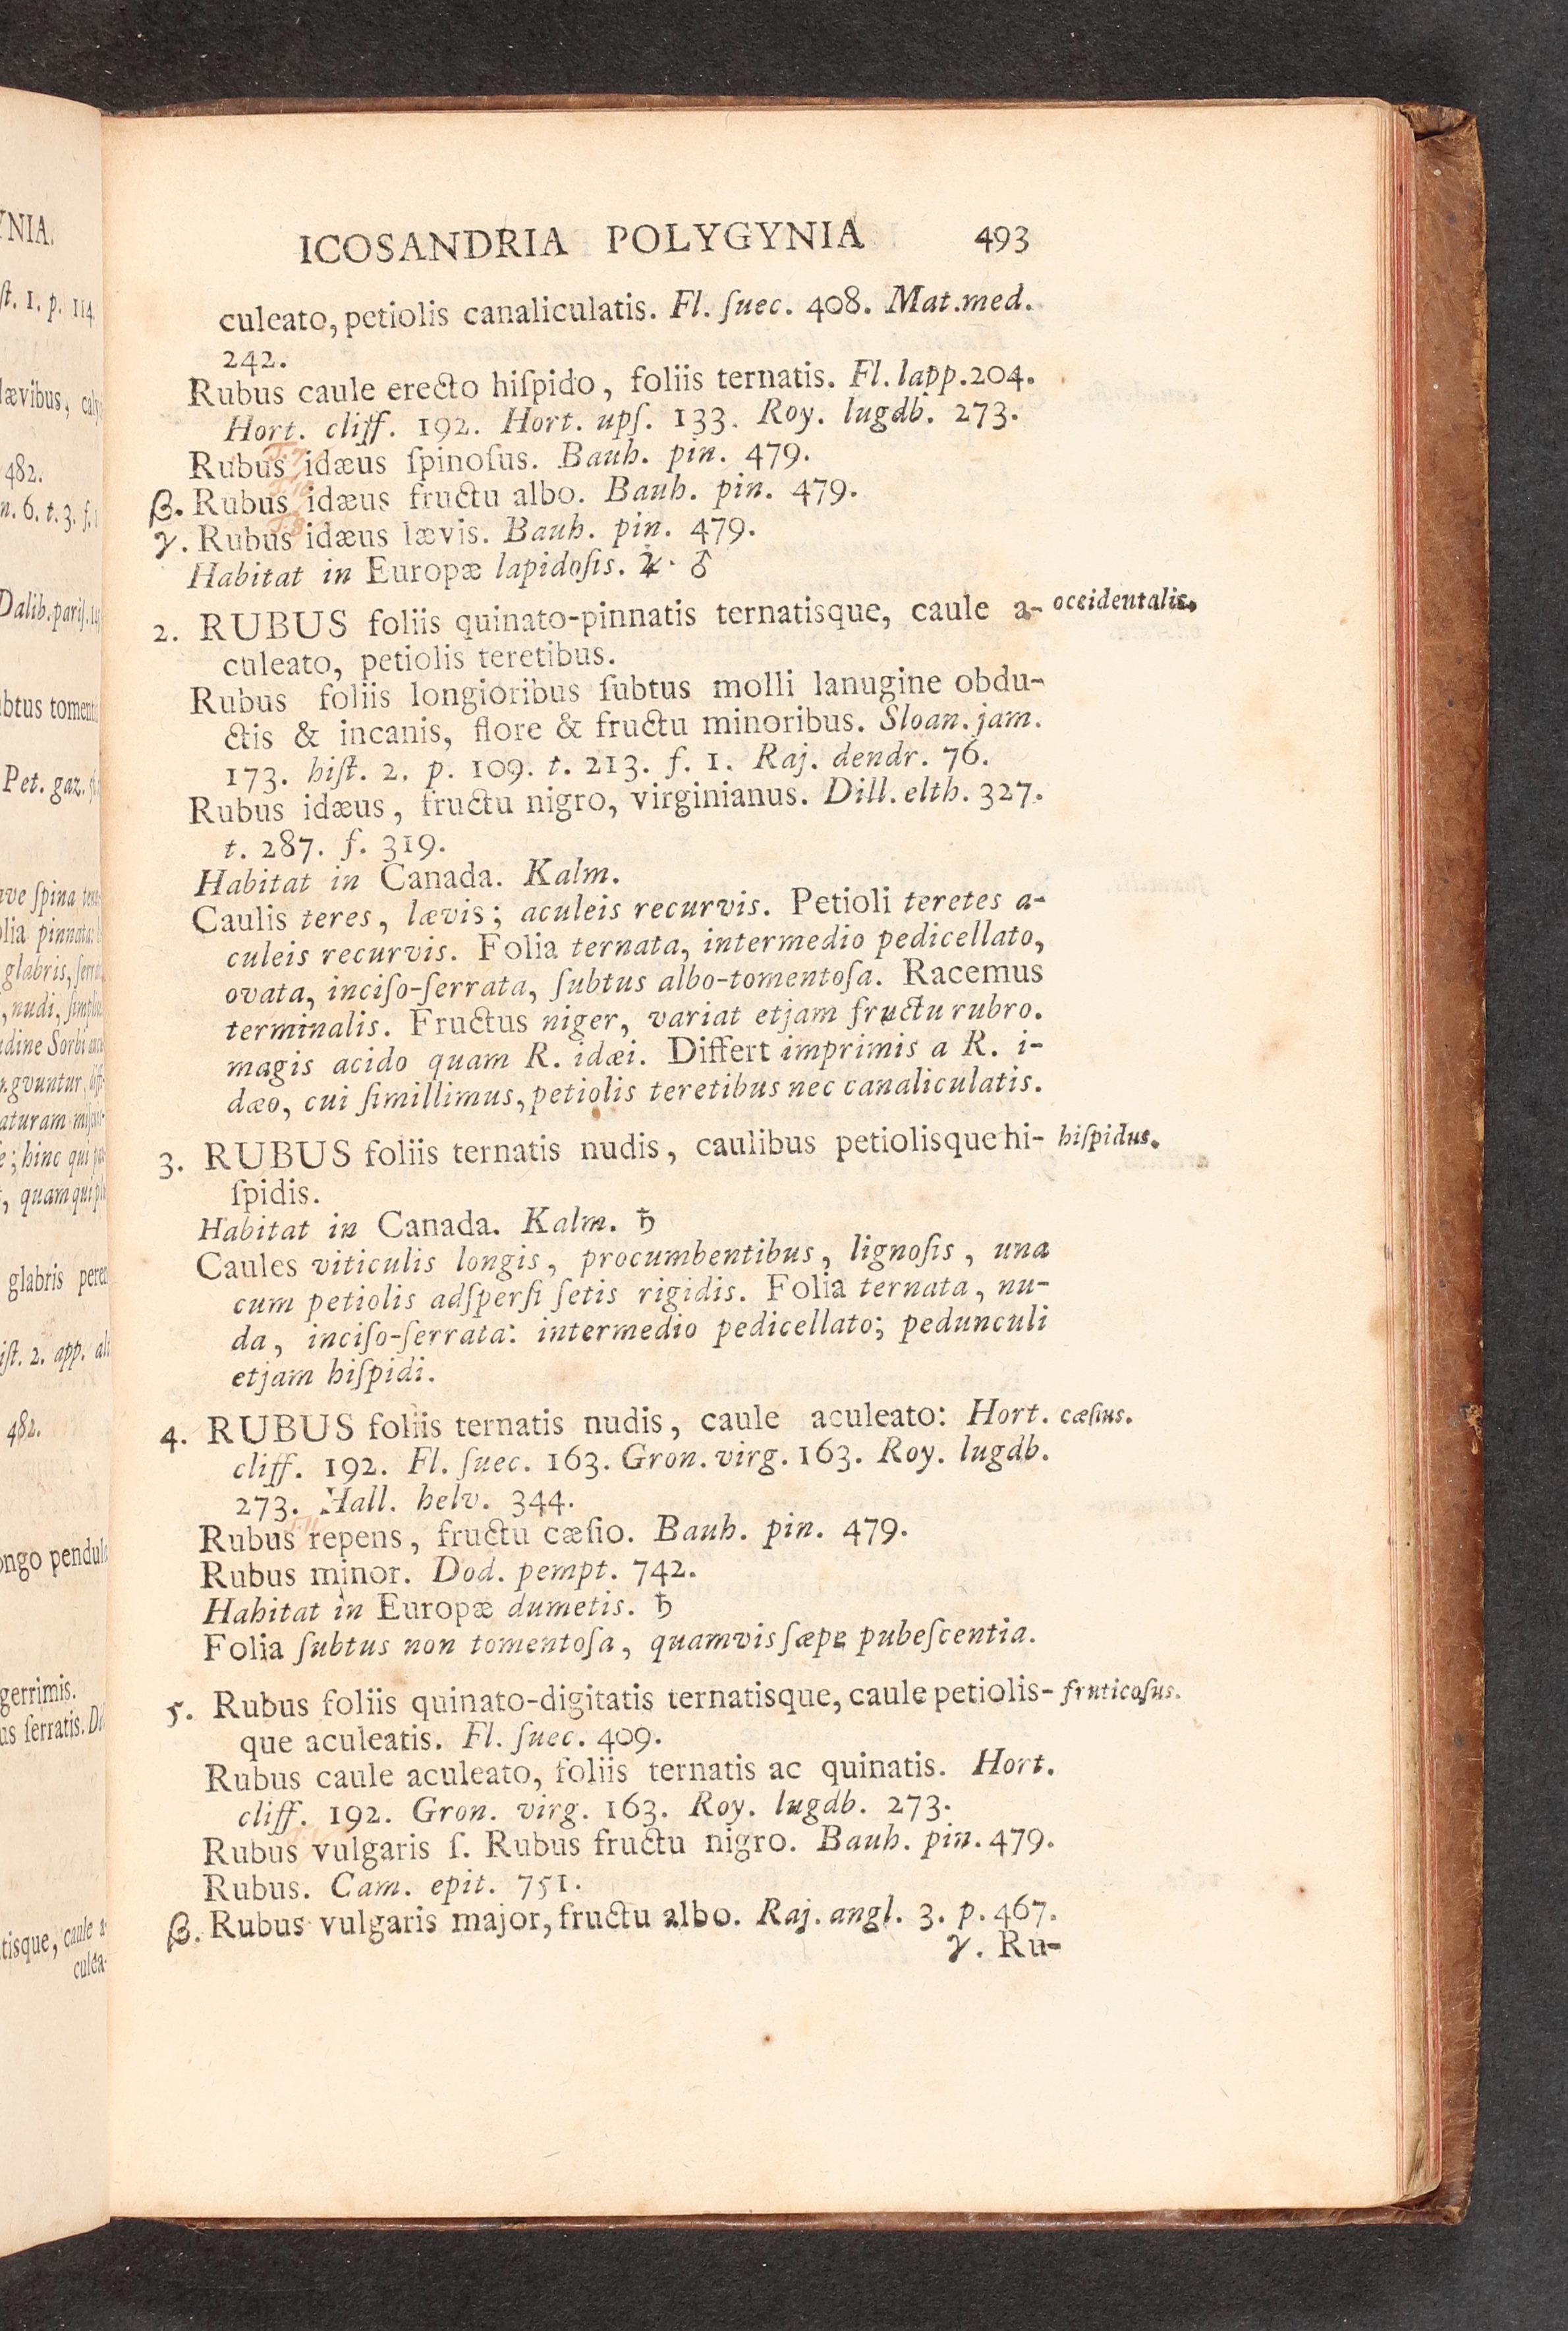 ICOSANDRIA POLYGYNIA 493
culeato, petiolis canaliculatis. Fl. ſuec. 408. Mat. med.
242.
Rubus caule erecto hiſpido, foliis ternatis. Fl. lapp. 204.
Hort. cliff. 192. Hort. upſ. 133. Roy. lugdb. 273.
Rubus idæus ſpinoſus. Bauh. pin. 479.
β. Rubus idæus fructu albo. Bauh. pin. 479.
γ. Rubus idæus lævis. Bauh. pin. 479.
Habitat in Europæ lapidoſis. ♃. ♂
2. RUBUS foliis quinato-pinnatis ternatisque, caule a- occidentalis.
culeato, petiolis teretibus.
Rubus foliis longioribus ſubtus molli lanugine obdu-
ctis & incanis, flore & fructu minoribus. Sloan. jam.
173. hiſt. 2. p. 109. t. 213. f. 1. Raj. dendr. 76.
Rubus idæus, fructu nigro, virginianus. Dill. elth. 327.
t. 287. f. 319.
Habitat in Canada. Kalm.
Caulis teres, lævis; aculeis recurvis. Petioli teretes a-
culeis recurvis. Folia ternata, intermedio pedicellato,
ovata, inciſo-ſerrata, ſubtus albo-tomentoſa. Racemus
terminalis. Fructus niger, variat etjam fructu rubro.
magis acido quam R. idæi. Differt imprimis a R. i-
dæo, cui ſimillimus, petiolis teretibus nec canaliculatis.
3. RUBUS foliis ternatis nudis, caulibus petiolisque hi- hiſpidus.
ſpidis.
Habitat in Canada. Kalm. ♄
Caules viticulis longis, procumbentibus, lignoſis, una
cum petiolis adſperſi ſetis rigidis. Folia ternata, nu-
da, inciſo-ſerrata: intermedio pedicellato; pedunculi
etjam hiſpidi.
4. RUBUS foliis ternatis nudis, caule aculeato: Hort. cæſius.
cliff. 192. Fl. ſuec. 163. Gron. virg. 163. Roy. lugdb.
273. Hall. helv. 344.
Rubus repens, fructu cæſio. Bauh. pin. 479.
Rubus minor. Dod. pempt. 742.
Habitat in Europæ dumetis. ♄
Folia ſubtus non tomentoſa, quamvis ſæpe pubeſcentia.
5. Rubus foliis quinato-digitatis ternatisque, caule petiolis- fruticoſus.
que aculeatis. Fl. ſuec. 409.
Rubus caule aculeato, foliis ternatis ac quinatis. Hort.
cliff. 192. Gron. virg. 163. Roy. lugdb. 273.
Rubus vulgaris ſ. Rubus fructu nigro. Bauh. pin. 479.
Rubus. Cam. epit. 751.
β. Rubus vulgaris major, fructu albo. Raj. angl. 3. p. 467.
γ. Ru-